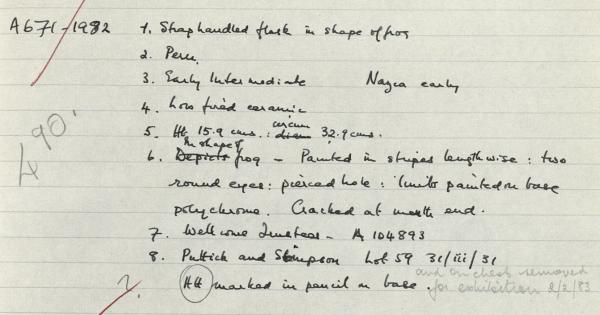 A671-1982 1. Strap handled flask in shape of frog
2. Peru
3. Early Intermediate Nazca early
4. Low fired ceramic
5. Ht 15.9 cms. : diam circum 32.9 cms.
6. Depicts in shape of frog - Painted in stripes lengthwise : two
round eyes : pierced hole : limbs painted on base
polychrome. Cracked at mouth end.
7. Wellcome Trustees - A 104893
8. Puttick and Simpson Lot 59 31/iii/31
HH marked in pencil on base. and on cheek removed
for exhibition 2/2/83
490'